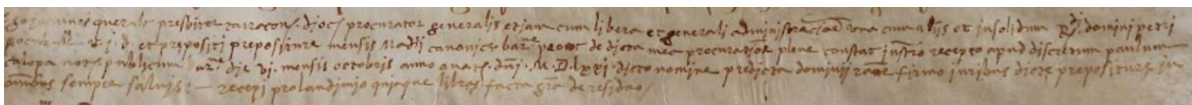 Ego Joannes queralt presbiter tarracon. dioc. procurator generalis etiam cum libera et generali administratione una cum aliis et insolidum R.di domini petri
v. j. d. et prepositi prepositure mensis Madii canonice bar.e prout de dicta mea procuratione plene constat instro recepto apud discretum paulum
not. publicum bar.e die vj. mensis octobris anno a nat.e dni. M. D. lxxi. dicto nomine predicta dominii raõe firmo iuribus dicte prepositure in
omnibus semper salvis: — recepi pro laudimio quinque libras facta gra de residuo